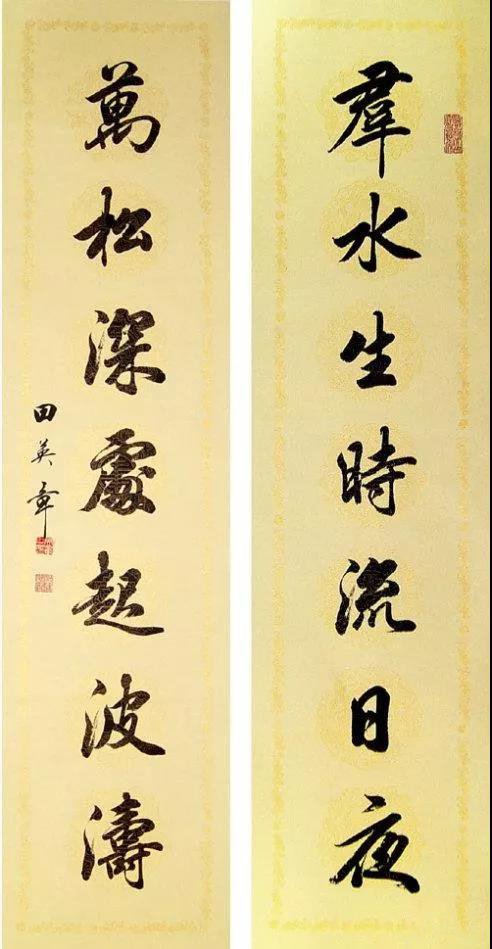 羣水生時流日夜
萬松深處起波濤
田英章